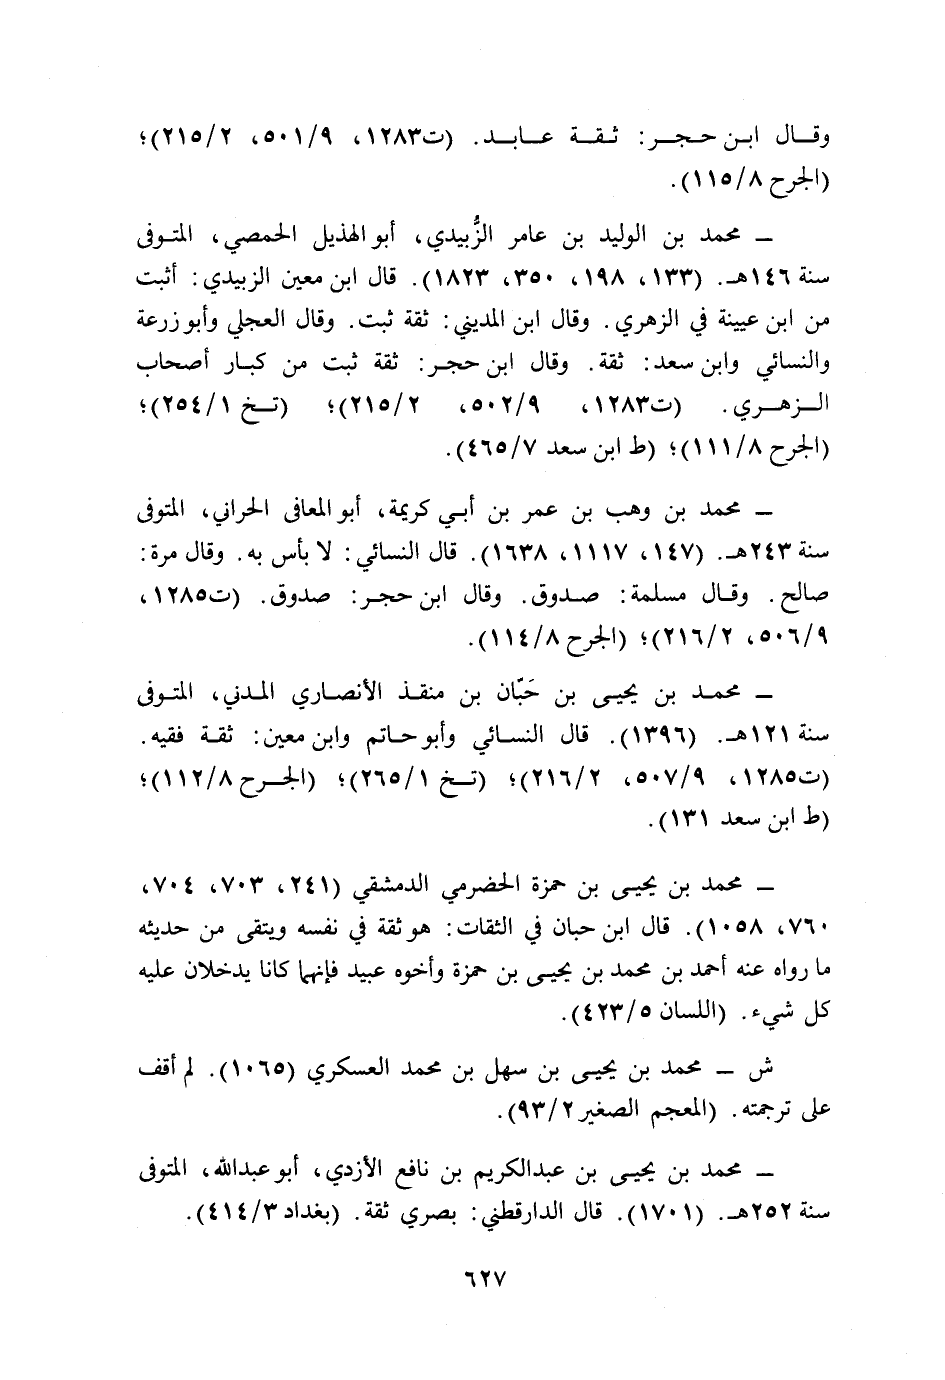 وقال ابن حجر: ثقة عابد. (ت١٢٨٣، ٥٠١/٩، ٢١٥/٢)؛
(الجرح ١١٥/٨).
ـ محمد بن الوليد بن عامر الزُّبيدي، أبو الهذيل الحمصي، المتوفى
سنة ١٤٦هـ. (١٣٣، ١٩٨، ٣٥٠، ١٨٢٣). قال ابن معين الزبيدي: أثبت
من ابن عيينة في الزهري. وقال ابن المديني: ثقة ثبت. وقال العجلي وأبو زرعة
والنسائي وابن سعد: ثقة. وقال ابن حجر: ثقة ثبت من كبار أصحاب
الزهري. (ت١٢٨٣، ٥٠٢/٩، ٢١٥/٢)؛ (تخ ٢٥٤/١)؛
(الجرح ١١١/٨)؛ (ط ابن سعد ٤٦٥/٧).
ـ محمد بن وهب بن عمر بن أبي كريمة، أبو المعافى الحراني، المتوفى
سنة ٢٤٣هـ. (١٤٧، ١١١٧، ١٦٣٨). قال النسائي: لا بأس به. وقال مرة:
صالح. وقال مسلمة: صدوق. وقال ابن حجر: صدوق. (ت١٢٨٥،
٥٠٦/٩، ٢١٦/٢)؛ (الجرح ١١٤/٨).
ـ محمد بن يحيى بن حَبّان بن منقذ الأنصاري المدني، المتوفى
سنة ١٢١هـ. (١٣٩٦). قال النسائي وأبو حاتم وابن معين: ثقة فقيه.
(ت١٢٨٥، ٥٠٧/٩، ٢١٦/٢)؛ (تخ ٢٦٥/١)؛ (الجرح ١١٢/٨)؛
(ط ابن سعد ١٣١).
ـ محمد بن يحيى بن حمزة الحضرمي الدمشقي (٢٤١، ٧٠٣، ٧٠٤،
٧٦٠، ١٠٥٨). قال ابن حبان في الثقات: هو ثقة في نفسه ويتقى من حديثه
ما رواه عنه أحمد بن محمد بن يحيى بن حمزة وأخوه عبيد فإنهما كانا يدخلان عليه
كل شيء. (اللسان ٤٢٣/٥).
ش ـ محمد بن يحيى بن سهل بن محمد العسكري (١٠٦٥). لم أقف
على ترجمته. (المعجم الصغير ٩٣/٢).
ـ محمد بن يحيى بن عبدالكريم بن نافع الأزدي، أبو عبدالله، المتوفى
سنة ٢٥٢هـ. (١٧٠١). قال الدارقطني: بصري ثقة. (بغداد ٤١٤/٣).
٦٢٧